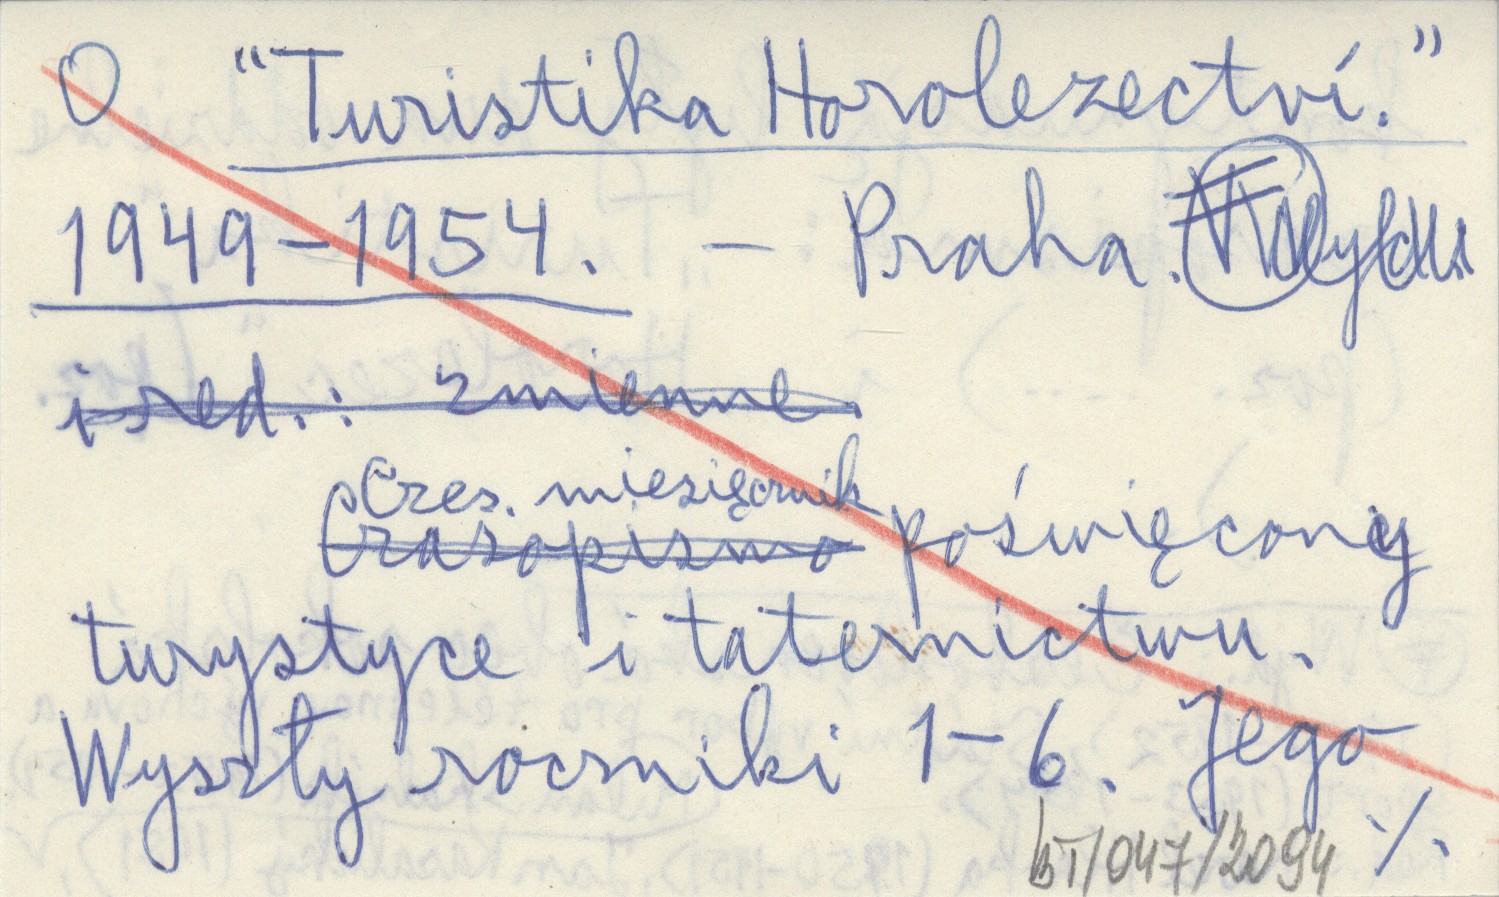 O “Turistika Horolezectví.”
1949–1954. – Praha.
i red.: zmienne.
Czes. miesięcznik
Czasopismo poświęcony
turystyce i taternictwu.
Wyszły roczniki 1–6. Jego
BT/047/2094 ./.